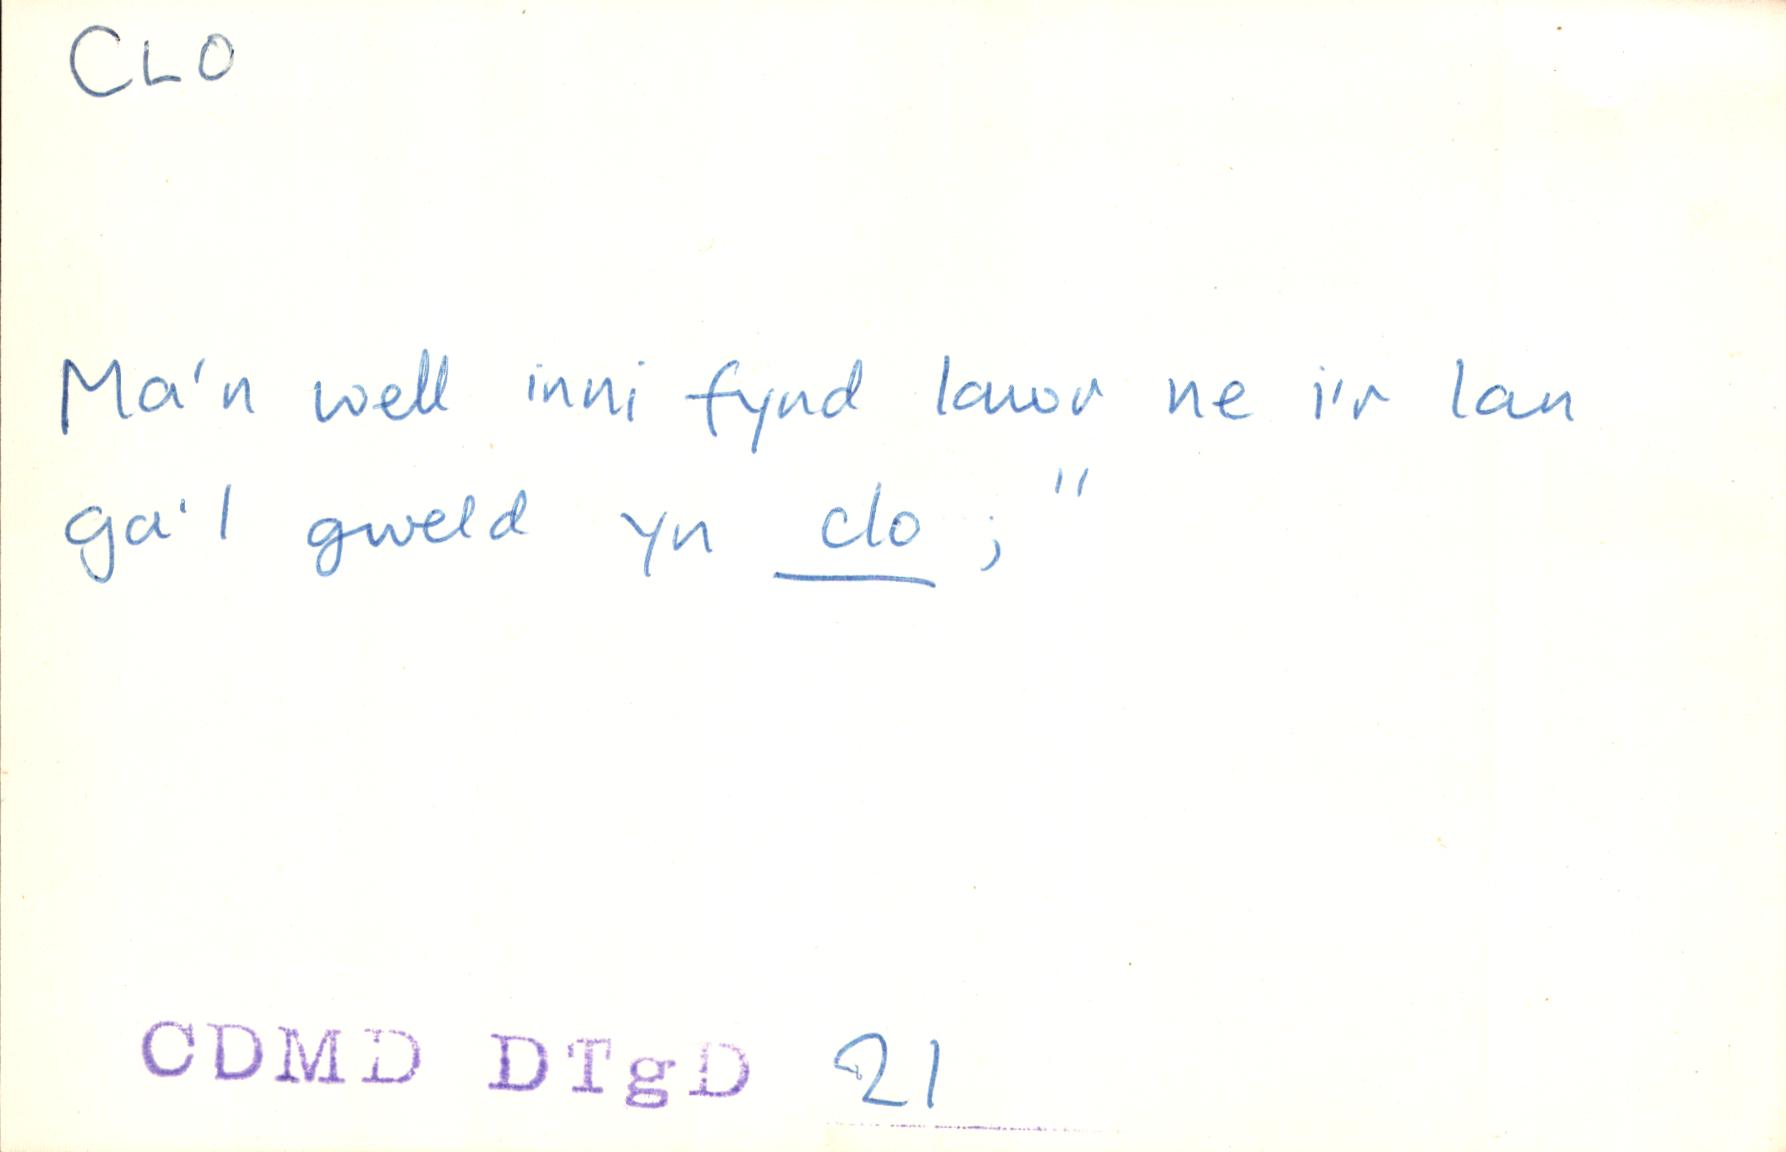 CLO
Ma'n well inni fynd lawr ne i'r lan
ga'l gweld yn clo ; "
CDMD DTgD 21